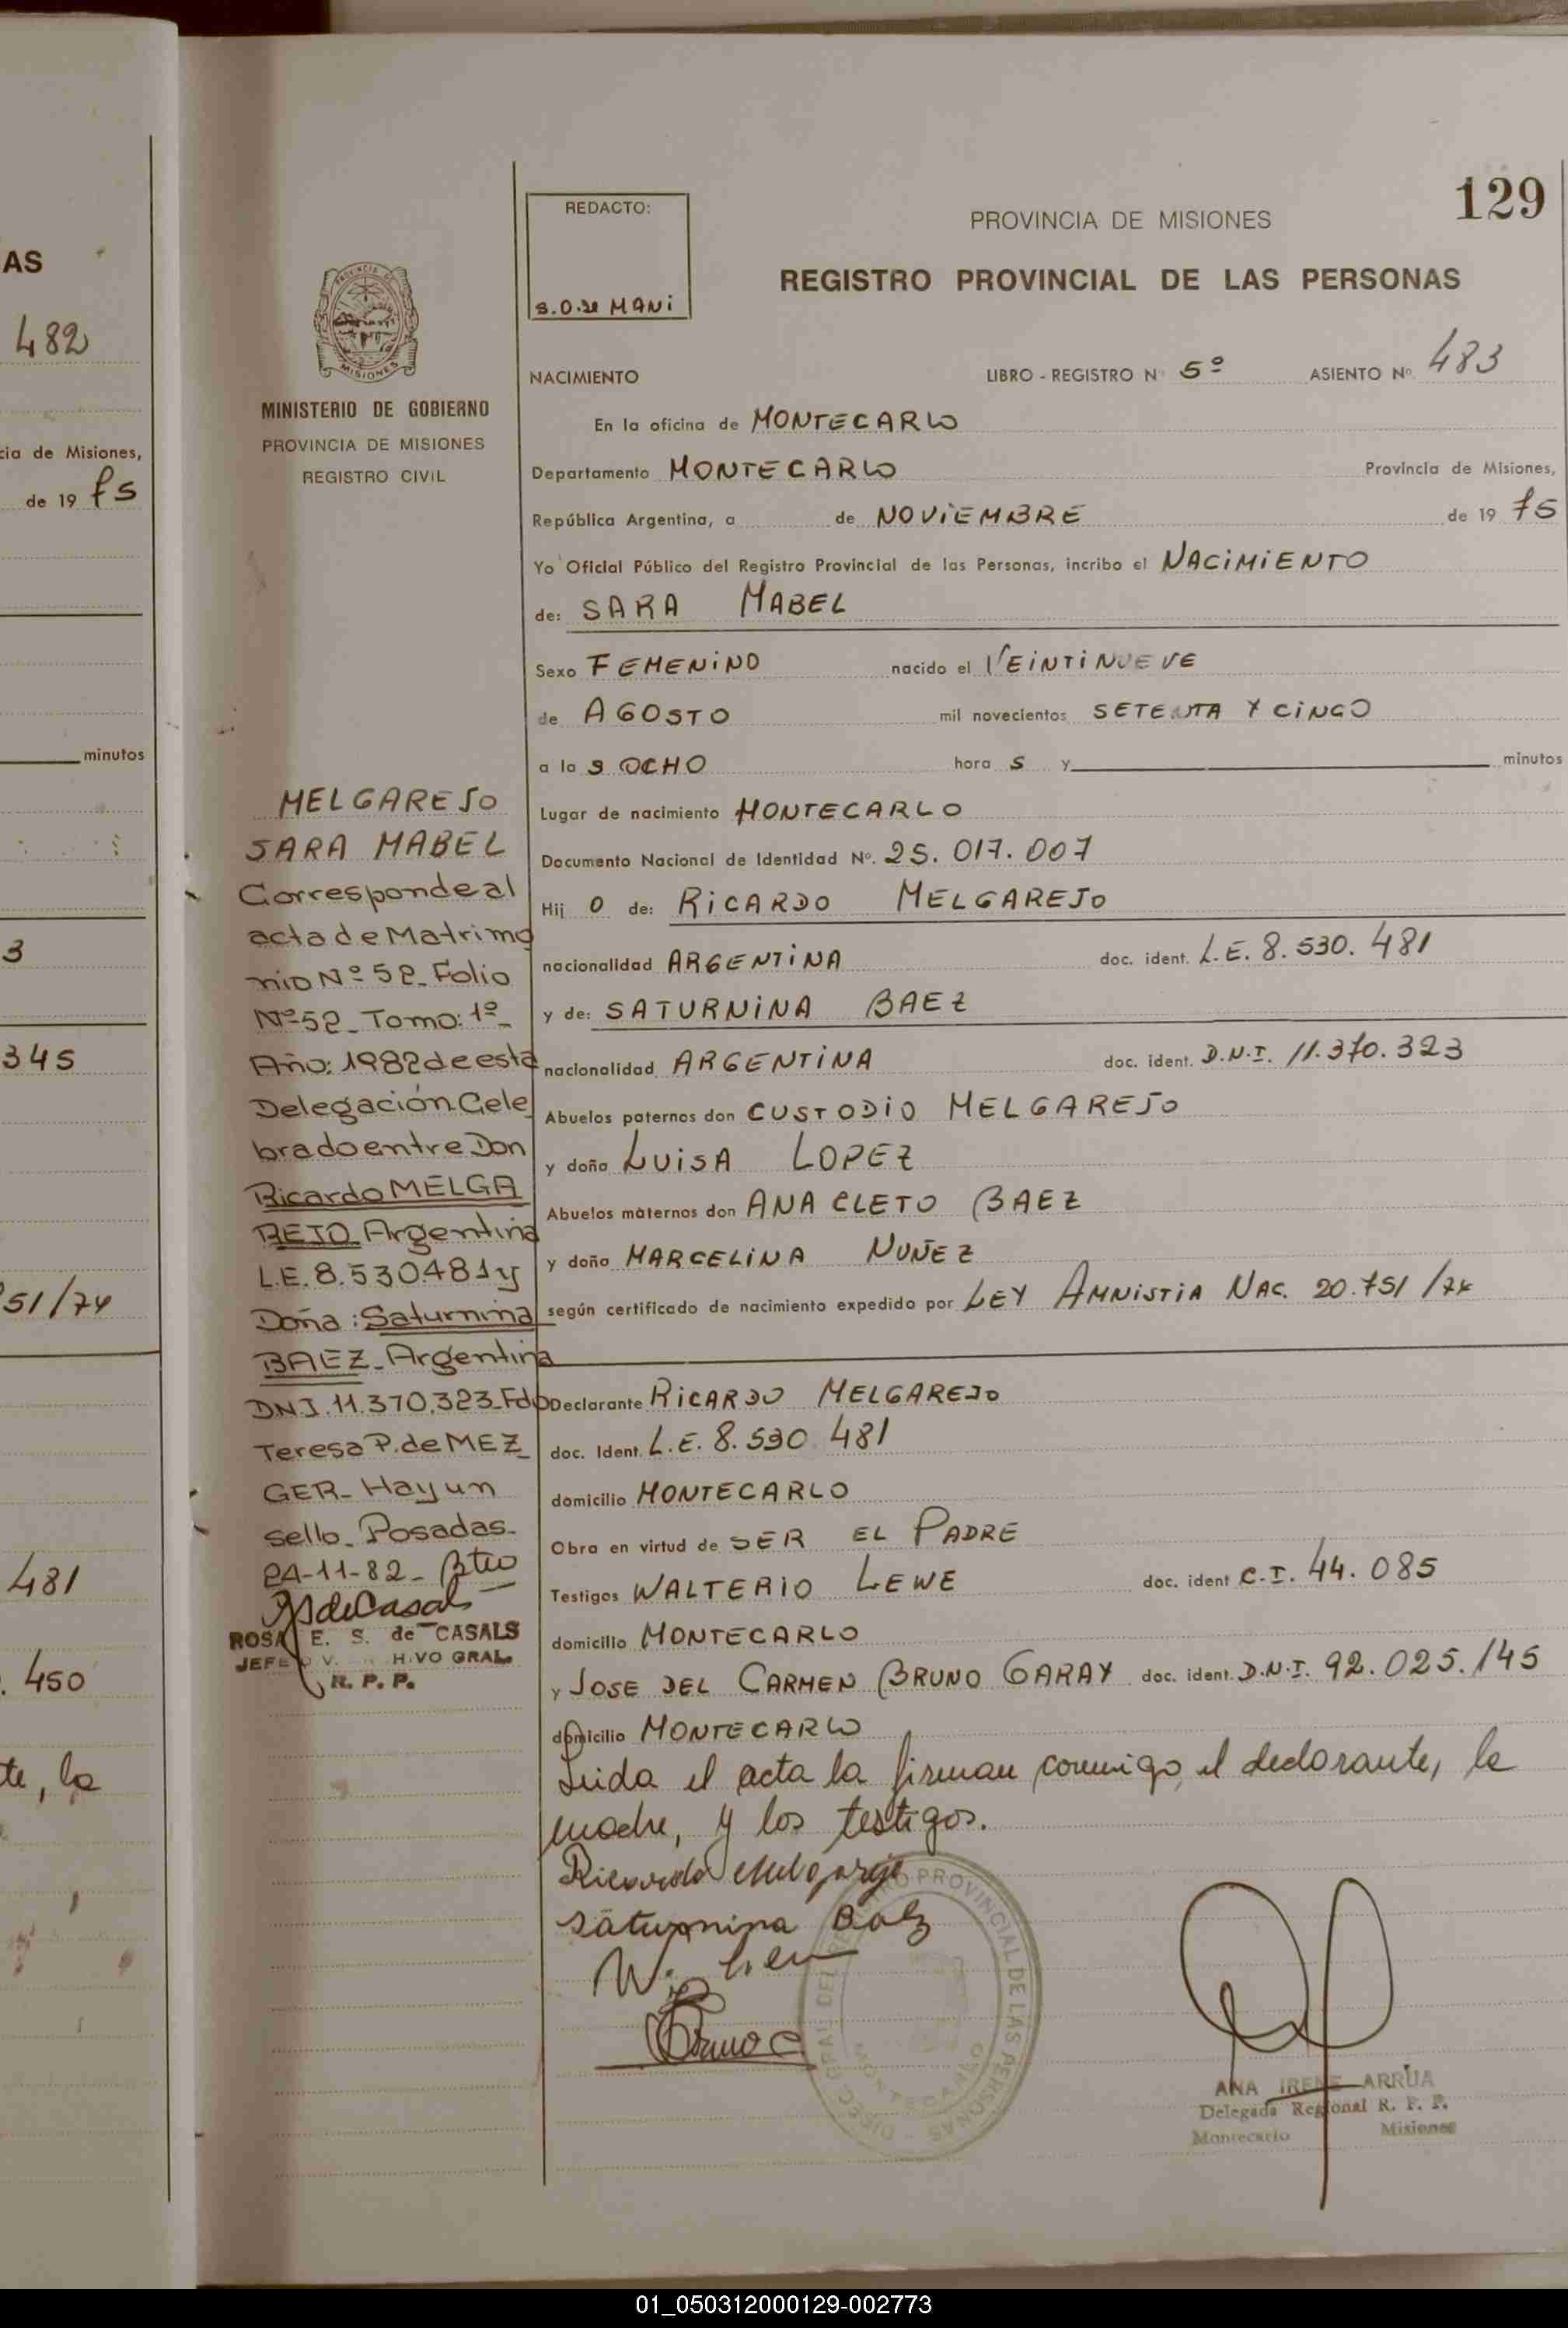 AS
482
cia de Misiones,
de 19 75
minutos
3
345
51/74
481
. 450
te, la
129
REDACTO:
S.O.de MANI
PROVINCIA DE MISIONES
REGISTRO PROVINCIAL DE LAS PERSONAS
MISIONES
MINISTERIO DE GOBIERNO
PROVINCIA DE MISIONES
REGISTRO CIVIL
NACIMIENTO LIBRO - REGISTRO Nº 5º ASIENTO Nº. 483
En la oficina de MONTECARLO
Departamento MONTECARLO Provincia de Misiones,
República Argentina, a de NOVIEMBRE de 19 75
Yo Oficial Público del Registro Provincial de las Personas, incribo el NACIMIENTO
de: SARA MABEL
Sexo FEMENINO nacido el VEINTINUEVE
de AGOSTO mil novecientos SETENTA Y CINCO
a la S OCHO hora S y minutos
Lugar de nacimiento MONTECARLO
Documento Nacional de Identidad Nº. 25.017.007
Hij O de: RICARDO MELGAREJO
nacionalidad ARGENTINA doc. ident. L.E. 8.530.481
y de: SATURNINA BAEZ
nacionalidad ARGENTINA doc. ident. D.N.I. 11.370.323
Abuelos paternos don CUSTODIO MELGAREJO
y doña LUISA LOPEZ
Abuelos maternos don ANACLETO BAEZ
y doña MARCELINA NUÑEZ
según certificado de nacimiento expedido por LEY AMNISTIA NAC. 20.751/74
Declarante RICARDO MELGAREJO
doc. Ident. L.E. 8.530 481
domicilio MONTECARLO
Obra en virtud de SER EL PADRE
Testigos WALTERIO LEWE doc. ident C.I. 44.085
domicilio MONTECARLO
y JOSE DEL CARMEN BRUNO GARAY doc. ident. D.N.I. 92.025.145
domicilio MONTECARLO
Leida el acta la firman conmigo, el declarante, la
madre, y los testigos.
Ricardo Melgarejo
saturnina Baez
Bruno C
MELGAREJO
SARA MABEL
Corresponde al
acta de Matrimo
nio Nº 52_Folio
Nº52_Tomo:1º_
Año:1982 de esta
Delegación Cele
brado entre Don
Ricardo MELGA
REJO Argentina
L.E.8.530481 y
Doña: Saturnina
BAEZ_Argentina
DNI.11.370.323_Fdo
Teresa P. de MEZ
GER_Hay un
sello_Posadas_
24-11-82_
ROSA E. S. de CASALS
JEFE
R. P. P.
DIREC. GRAL. DEL REGISTRO PROVINCIAL DE LAS PERSONAS
MONTECARLO
ANA IRENE ARRUA
Delegada Regional R. P. P.
Montecarlo Misiones
01_050312000129-002773